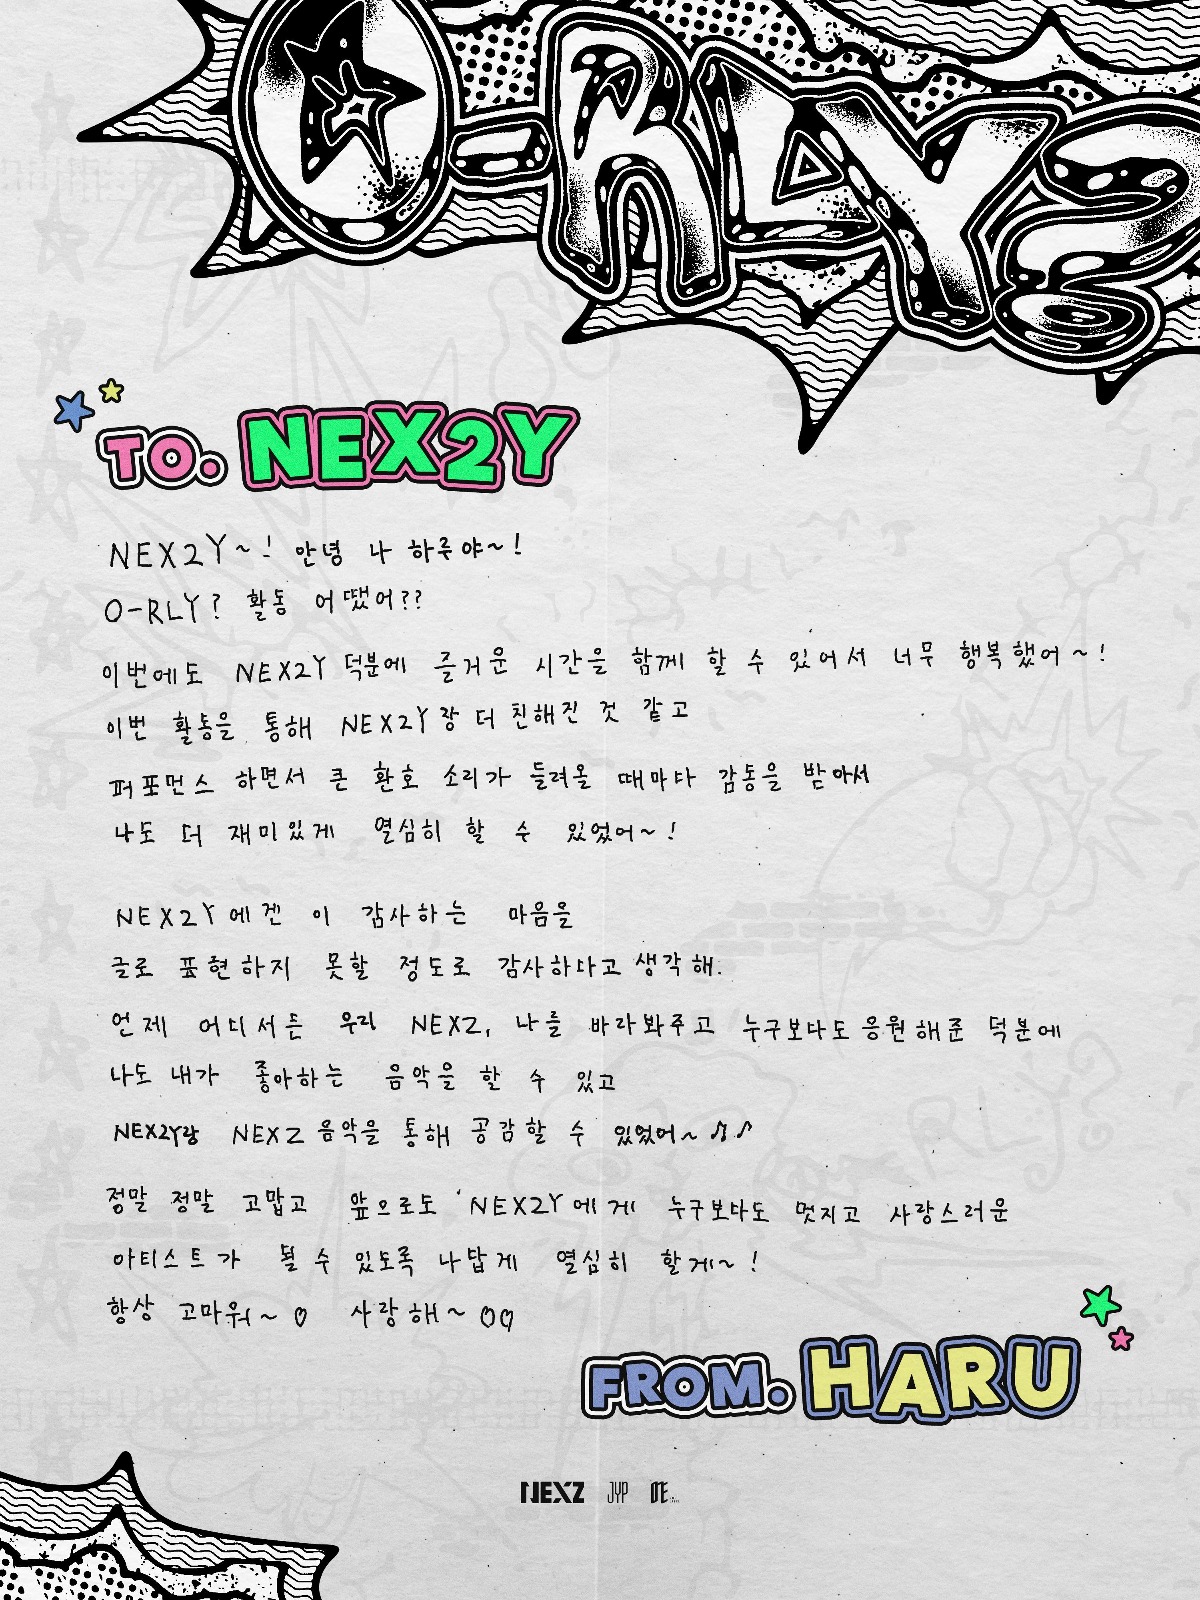 O-RLY?
TO. NEX2Y
NEX2Y~! 안녕 나 하루야~!
O-RLY? 활동 어땠어??
이번에도 NEX2Y 덕분에 즐거운 시간을 함께 할 수 있어서 너무 행복했어~!
이번 활동을 통해 NEX2Y랑 더 친해진 것 같고
퍼포먼스 하면서 큰 환호 소리가 들려올 때마다 감동을 받아서
나도 더 재미있게 열심히 할 수 있었어~!
NEX2Y에겐 이 감사하는 마음을
글로 표현하지 못할 정도로 감사하다고 생각해.
언제 어디서든 우리 NEXZ, 나를 바라봐주고 누구보다도 응원해준 덕분에
나도 내가 좋아하는 음악을 할 수 있고
NEX2Y랑 NEXZ 음악을 통해 공감할 수 있었어~♪♪
정말 정말 고맙고 앞으로도 NEX2Y에게 누구보다도 멋지고 사랑스러운
아티스트가 될 수 있도록 나답게 열심히 할게~!
항상 고마워~♡ 사랑해~♡♡
FROM. HARU
NEXZ JYP